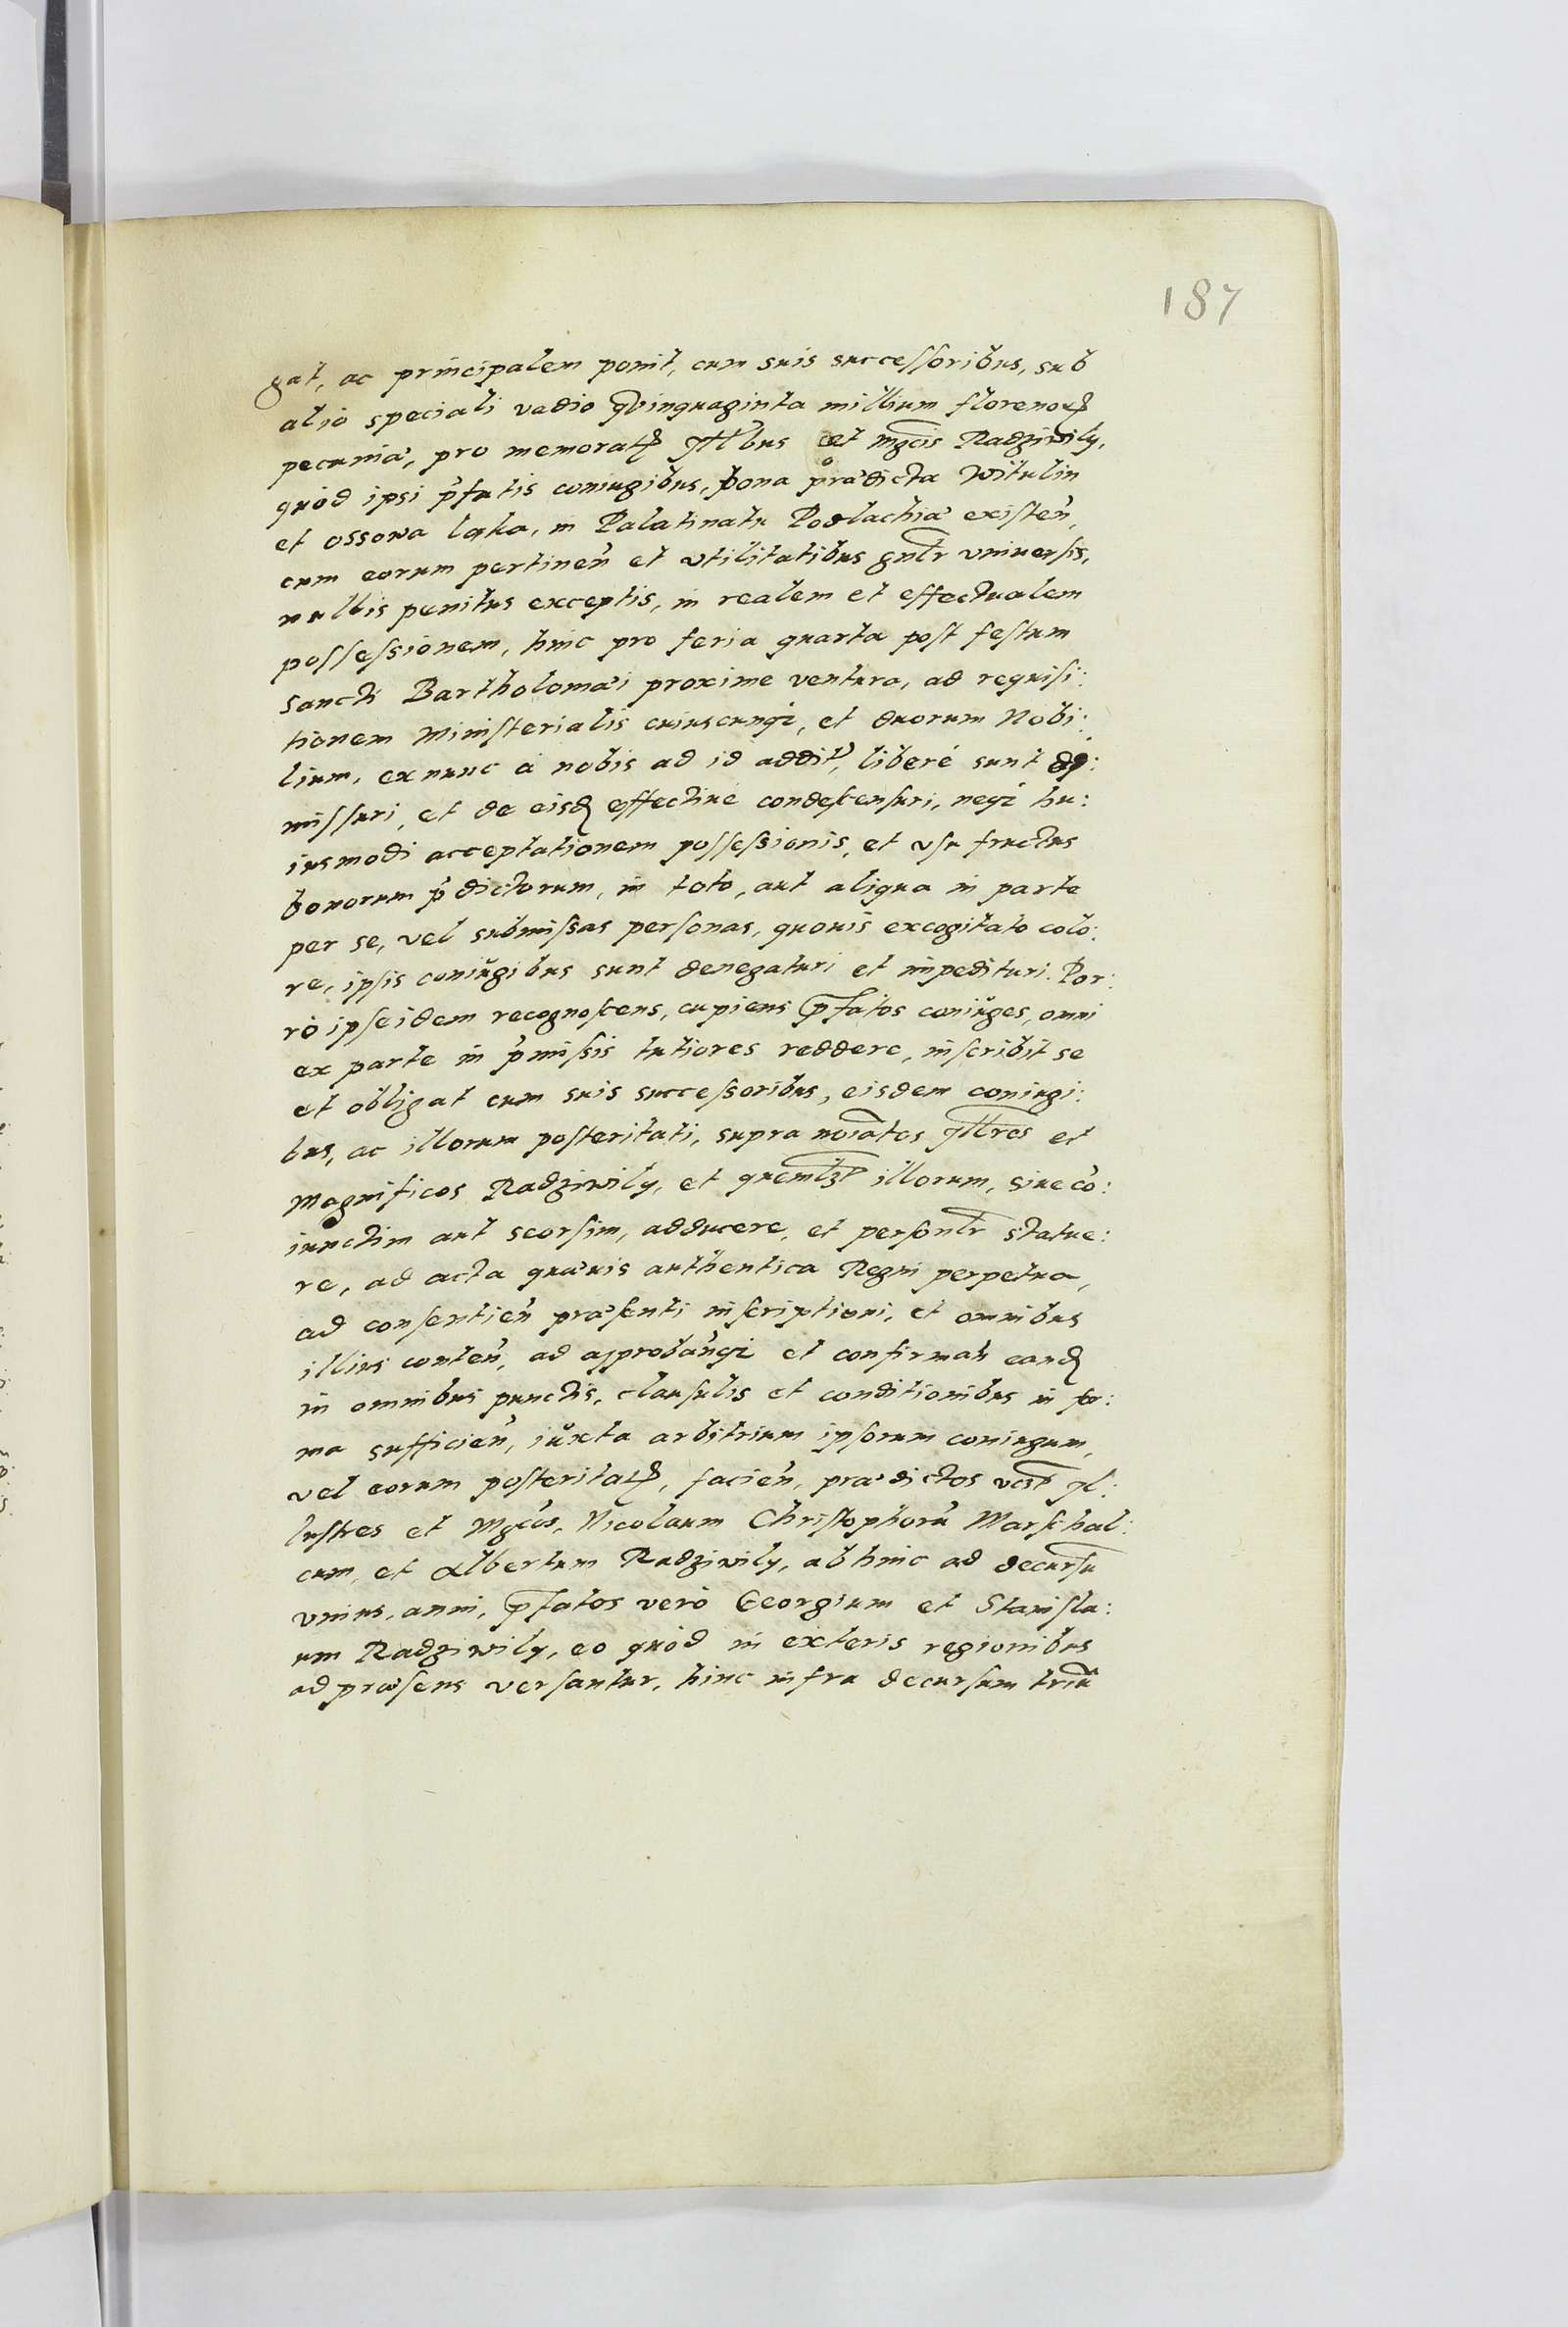 187
gat, ac principalem ponit, cum suis successoribus, sub
alio speciali vadio Quinquaginta millium florenoꝝ
pecuniæ, pro memoratꝭ Jllbus et mgcis Radziwily,
quòd ipsi p̃fatis coniugibus, bona prædicta Witulin
et ossowa ląka, in Palatinatu Podlachiæ existen̄,
cum eorum pertinen̄ et vtilitatibus gnlr vniuersis,
nullis penitus exceptis, in realem et effectualem
possessionem, hinc pro feria quarta post festum
Sancti Bartholomæi proxime ventura, ad requisi:
tionem Ministerialis cuiuscunqꝫ, et duorum Nobi:
lium, ex nunc à nobis ad id addit̃, liberé sunt
missuri, et de eisd effectiue condescensuri, neqꝫ hu:
iusmodi acceptationem possessionis, et vsu fructus
bonorum p̃dictorum, in toto, aut aliqua in parte
per se, vel submissas personas, quouis excogitato colo:
re, ipsis coniŭgibus sunt denegaturi et impedituri. Por:
rò ipse idem recognoscens, cupiens p̃fatos coniŭges, omni
ex parte in p̃missis tutiores reddere, inscribit se
et obligat cum suis successoribus, eisdem coniugi:
bus, ac illorum posteritati, supra noiatos Jllres et
Magnificos Radziwily, et quemlzt illorum, siue cō:
iunctim aut seorsim, adducere, et personlr statue:
re, ad acta quæuis authentica Regni perpetua,
ad consentien̄ præsenti inscriptioni, et omnibus
illius conten̄, ad approban̄qꝫ et confirman̄ eand
in omnibus punctis, clausulis et conditionibus in for:
ma sufficien̄, iŭxta arbitrium ipsorum coniugum,
vel eorum posteritatꝭ, facien̄, prædictos vcꝫt Jl:
lustres et Mgcos, Nicolaum Christophorū Marschal:
cum, et Albertum Radziwily, ab hinc ad decursū
vnius, anni, p̃fatos verò Georgium et Stanisla:
um Radziwily, eo quòd in exteris regionibus
ad præsens versantur, hinc infra decursum triū